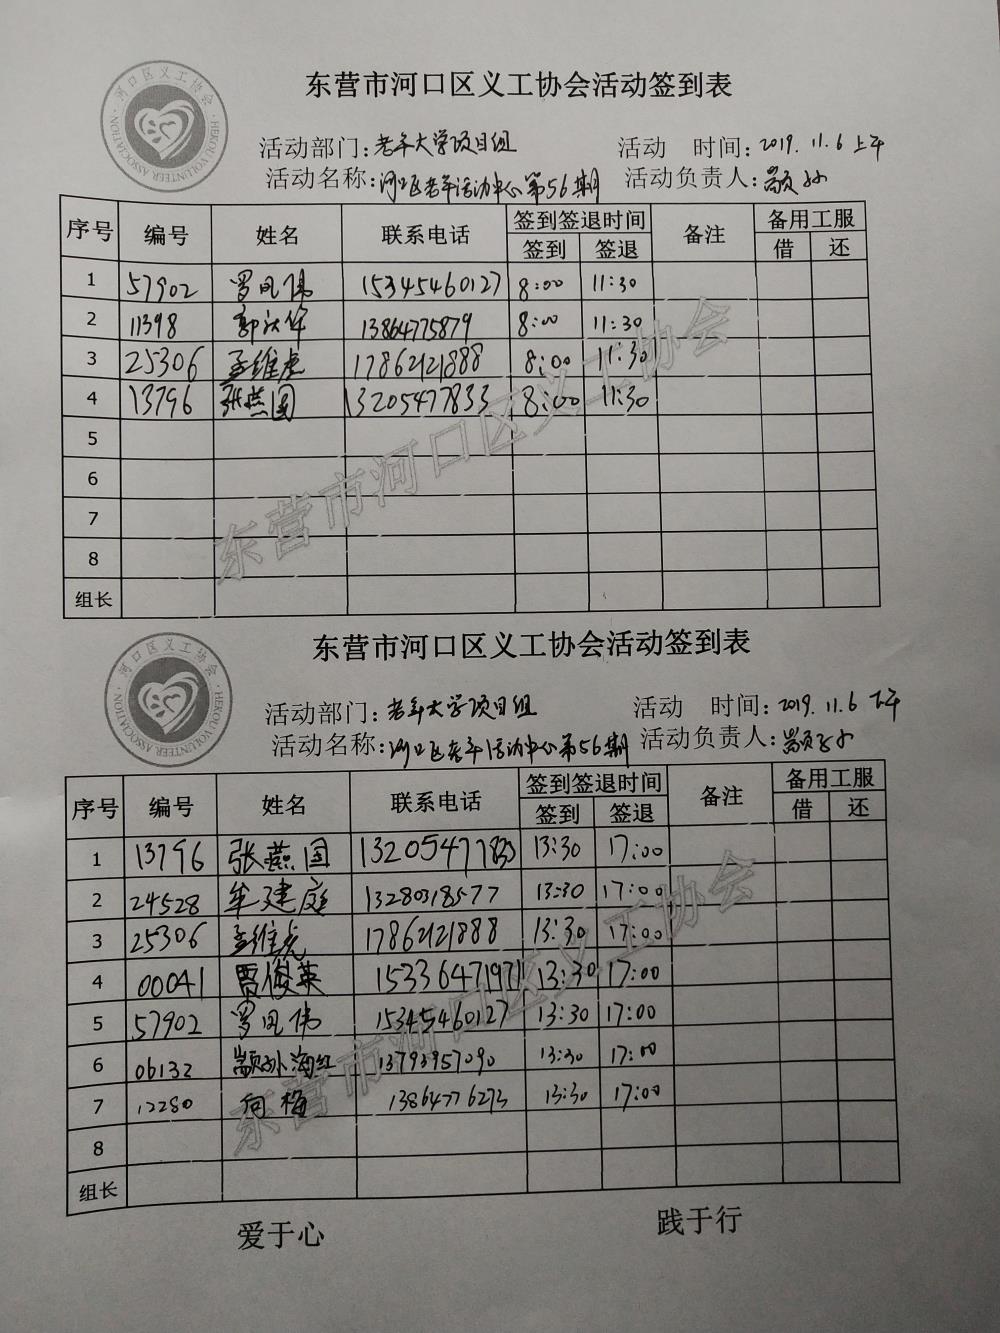 东营市河口区义工协会活动签到表
河口区义工协会
HEKOU VOLUNTEER ASSOCIATION
活动部门:老年大学项目组 活动 时间:2019.11.6上午
活动名称:河口区老年活动中心第56期 活动负责人:颛孙
序号 编号 姓名 联系电话 签到签退时间 备注 备用工服
签到 签退 借 还
1 57902 罗凤伟 15345460127 8:00 11:30
2 11398 郭 华 13864775879 8:00 11:30
3 25306 孟维虎 17862121888 8:00 11:30
4 13796 张燕国 13205477833 8:00 11:30
5
6
7
8
组长
东营市河口区义工协会
东营市河口区义工协会活动签到表
河口区义工协会
HEKOU VOLUNTEER ASSOCIATION
活动部门:老年大学项目组 活动 时间:2019.11.6下午
活动名称:河口区老年活动中心第56期 活动负责人:颛孙
序号 编号 姓名 联系电话 签到签退时间 备注 备用工服
签到 签退 借 还
1 13796 张燕国 13205477833 13:30 17:00
2 24528 牟建庭 13280318577 13:30 17:00
3 25306 孟维虎 17862121888 13:30 17:00
4 00041 贾俊英 15336471971 13:30 17:00
5 57902 罗凤伟 15345460127 13:30 17:00
6 06132 颛孙海红 13793957090 13:30 17:00
7 12280 向梅 13864776273 13:30 17:00
8
组长
东营市河口区义工协会
爱于心 践于行